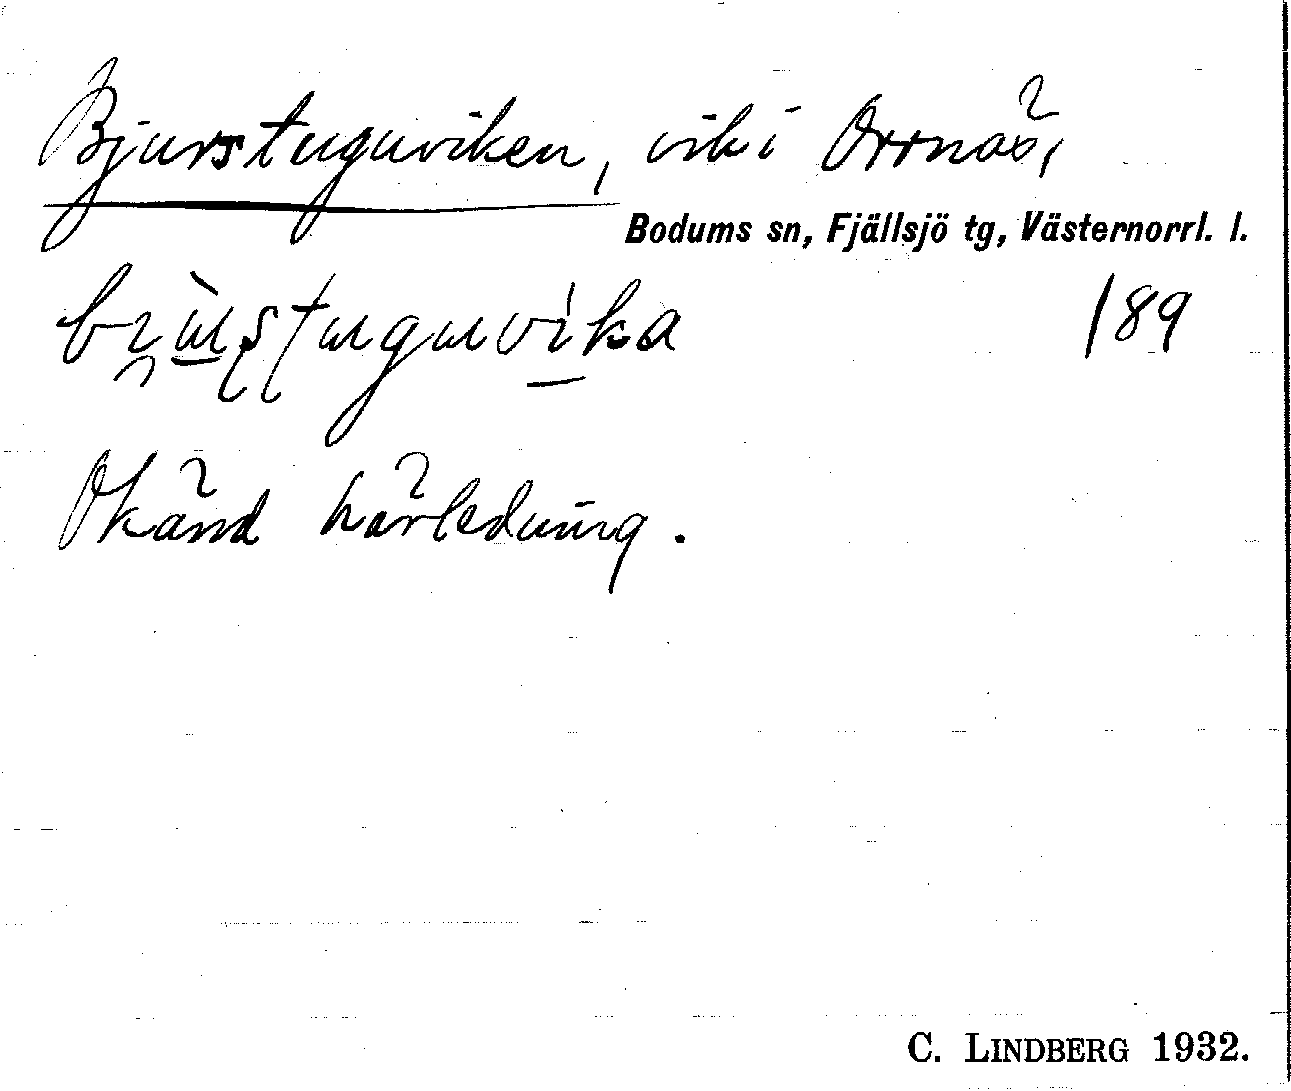 Bjurstuguviken, vik i Orrnäs,
Bodums sn, Fjällsjö tg, Västernorrl. l.
189
Okänd härledning.
C. LINDBERG 1932.